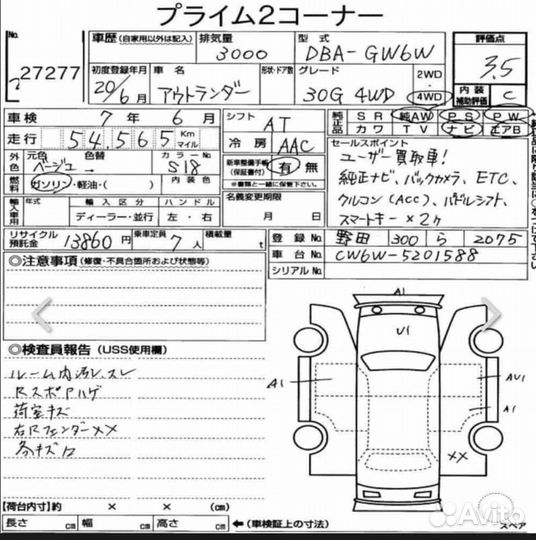 プライム2コーナー
No.
27277
車歴 (自家用以外は記入)
排気量
3000
型式
DBA-GW6W
評価点
3.5
初度登録年月
20/6月
車名
アウトランダー
形状・ドア数
グレード
30G 4WD
2WD
4WD
内装
補助評価
C
車検
7年 6月
シフト
AT
純正品
SR 純AW PS PW
カワ TV ナビ エアB
走行
54,565
Km
マイル
冷房
AAC
セールスポイント
ユーザー買取車!
純正ナビ、バックカメラ、ETC、
クルコン(ACC)、パドルシフト、
スマートキー×2ヶ
外色
元色
ベージュ
色替
カラーNo.
S18
新車整備手帳
(保証書付)
有 無
※書類と一緒に保管して下さい。
燃料
ガソリン・軽油・( )
内装色
名義変更期限
月 日
輸入車
年式
輸入区分
ディーラー・並行
ハンドル
左・右
リサイクル
預託金
13860円
乗車定員
7人
積載量
t
登録No.
野田 300 ら 2075
車台No.
CW6W-5201588
シリアルNo.
◎注意事項 (修復・不具合箇所および状態等)
◎検査員報告 (USS使用欄)
ルーム内汚レスレ
RスポAハゲ
荷室キズ
右Rフェンダー××
各キズ
A1
U1
A1
AU1
A1
××
【荷台内寸】約 × × (cm)
長さ cm 幅 cm 高さ cm
←(車検証上の寸法)
スペア
Avito